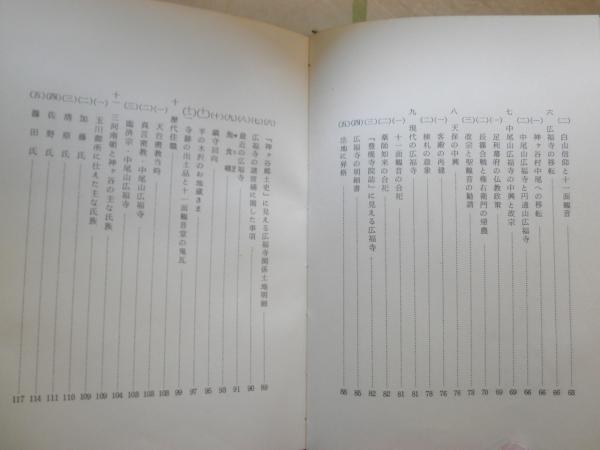 (二) 白山信仰と十一面観音 63
六 広福寺の移転 66
(一) 神ヶ谷村中尾への移転 66
(二) 中尾山広福寺と円通山広福寺 66
七 中尾山広福寺の中興と改宗 69
(一) 足利幕府の仏教政策 69
(二) 長篠合戦と権右衛門の帰農 70
(三) 改宗と聖観音の勧請 73
八 天保の中興 76
(一) 客殿の再建 76
(二) 棟札の意象 78
九 現代の広福寺 81
(一) 十一面観音の合祀 81
(二) 薬師如来の合祀 82
(三) 「豊饒寺院誌」に見える広福寺 82
(四) 広福寺の明細書 85
(五) 法地に昇格 86
(六) 「神ヶ谷郷土史」に見える広福寺関係土地明細 89
(七) 広福寺の諸普請に関した事項 90
(八) 最近の広福寺 91
(九) 施食幡 93
(十) 鎮守回向 95
(十一) 平の木沢のお地蔵さま 95
(十二) 寺跡の出土品と十一面観音堂の鬼瓦 97
十 歴代住職 99
(一) 天台密教当時
(二) 真言密教・中尾山広福寺
(三) 臨済宗・中尾山広福寺
十一 三河南朝と神ヶ谷の主な氏族 104
(一) 玉川御所に仕えた主な氏族 109
(二) 加藤氏
(三) 清原氏 110
(四) 佐野氏 111
(五) 藤田氏 114
117